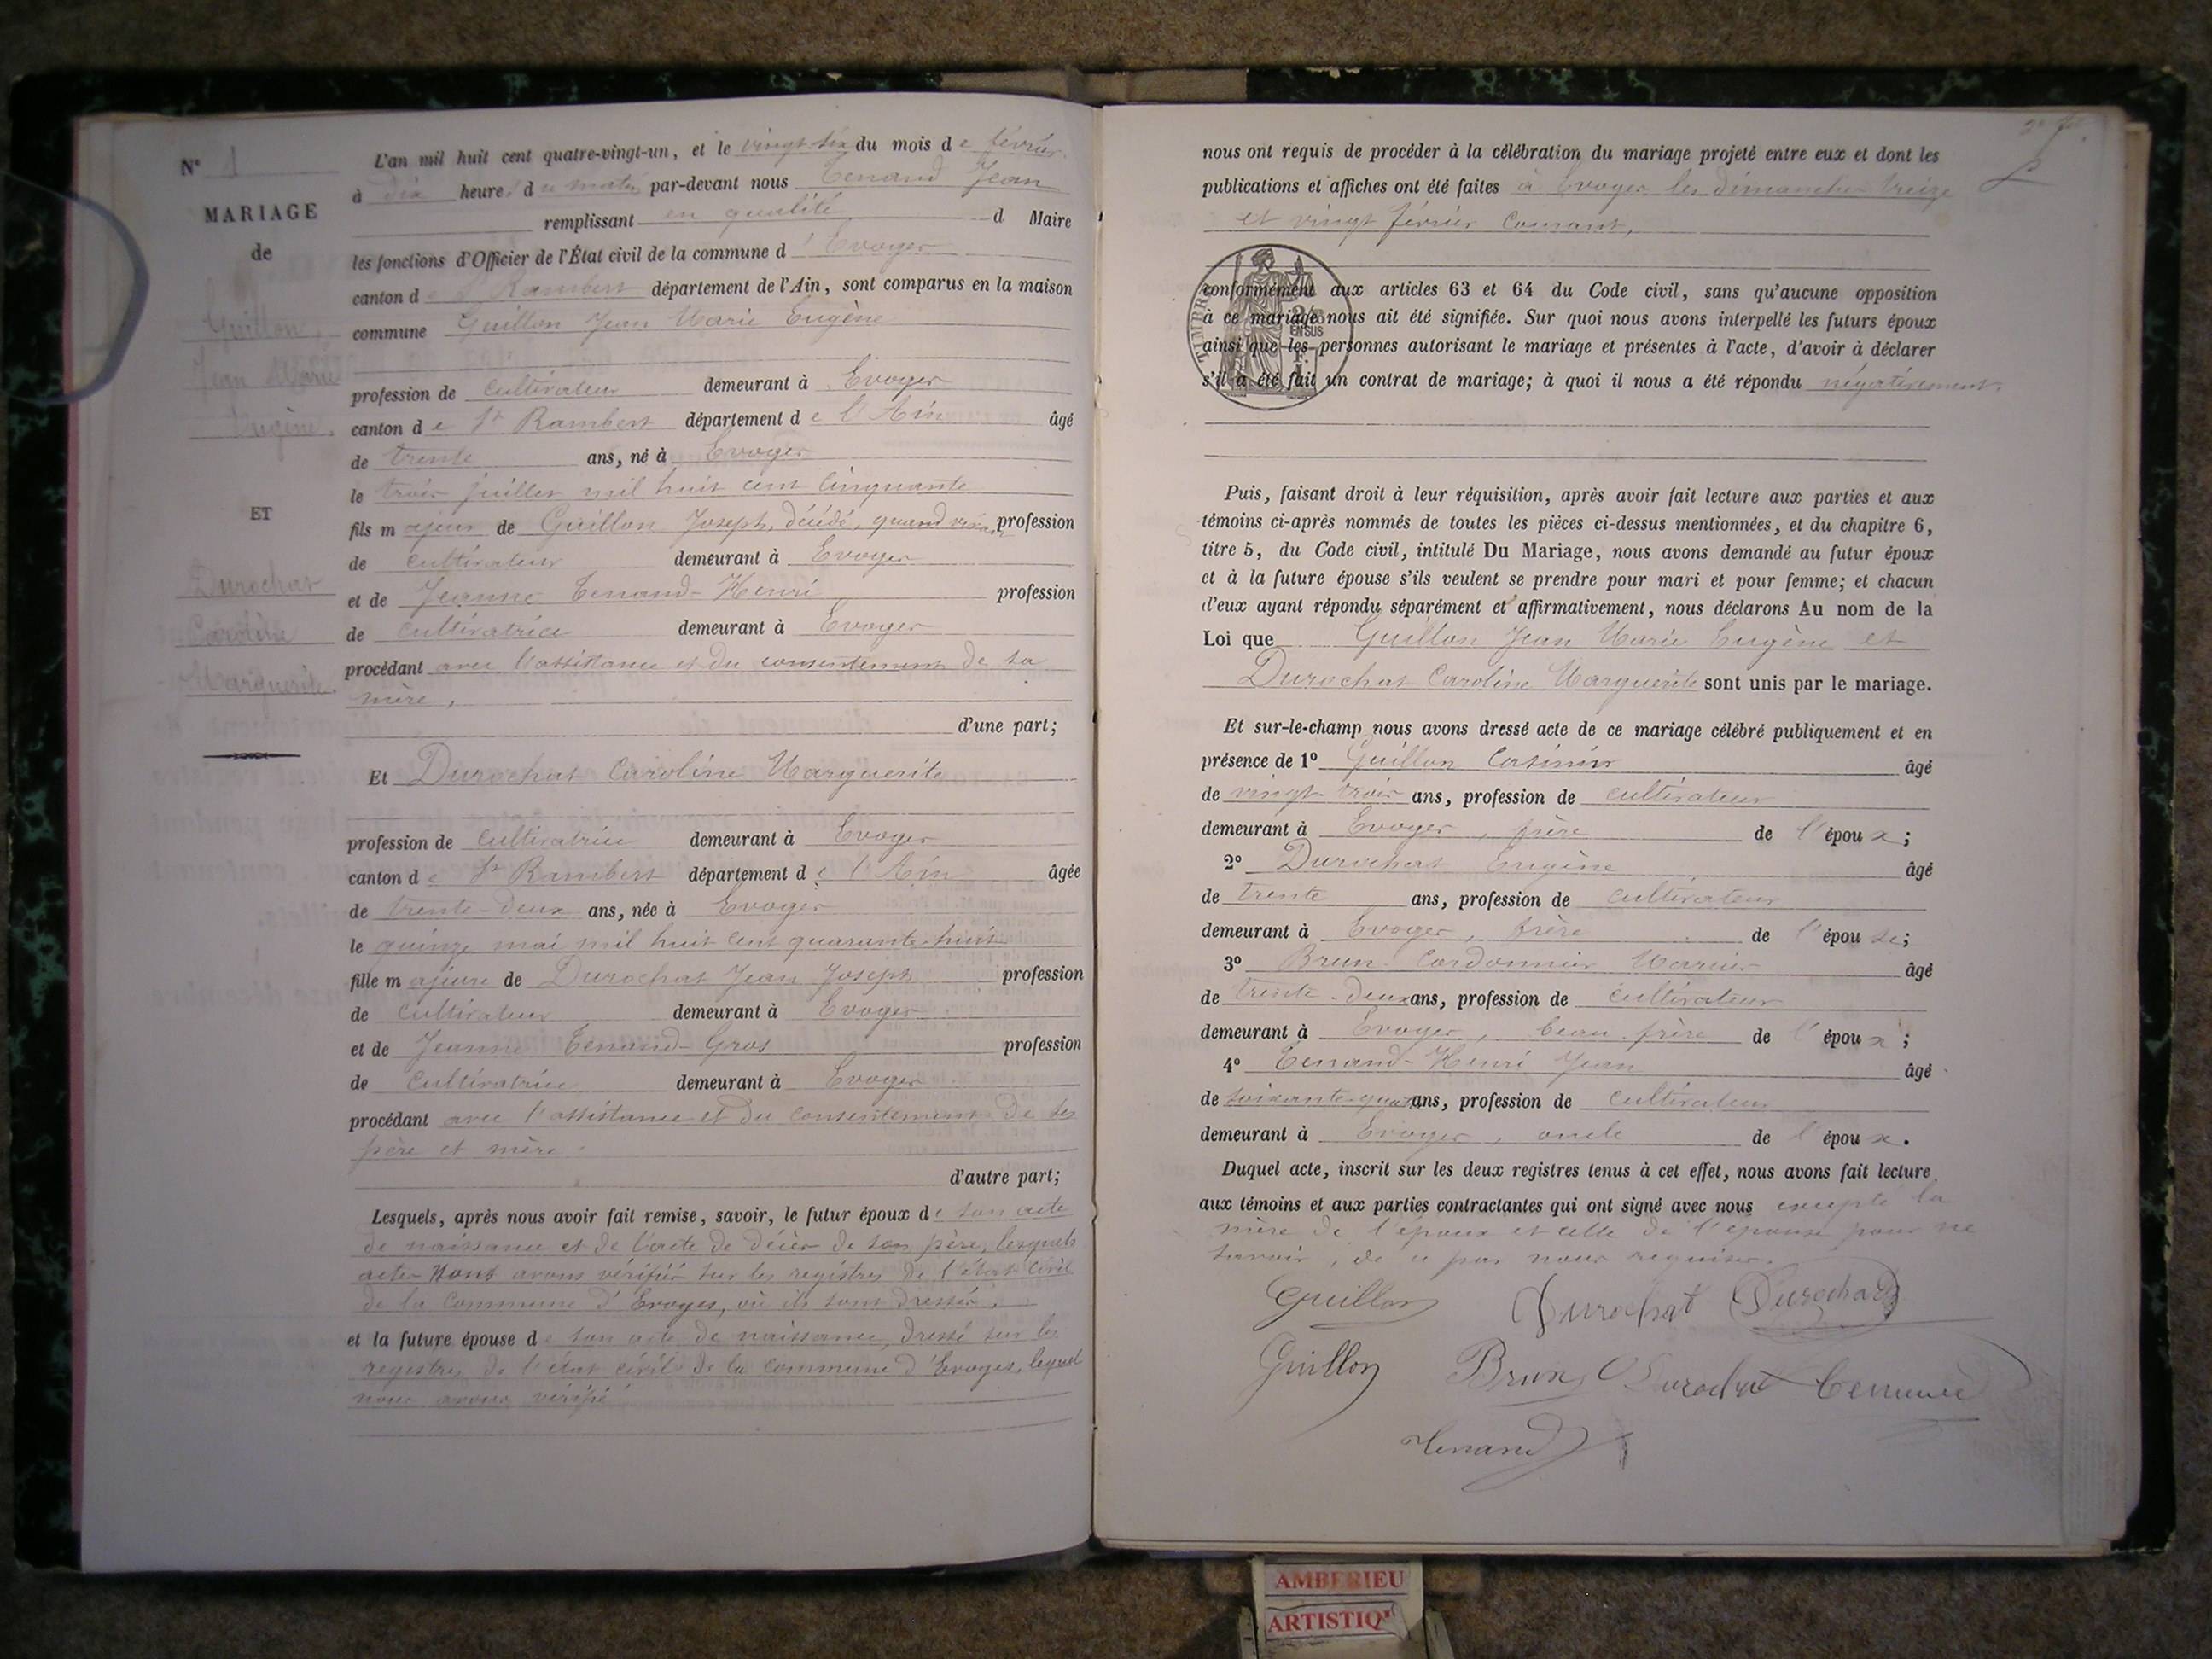 N° 1
MARIAGE
de
Guillon
Jean Marie
Eugène.
ET
Durochat
Caroline
Marguerite.
L'an mil huit cent quatre-vingt-un, et le vingt-six du mois de février
à dix heures du matin par-devant nous Tenand Jean
remplissant en qualité d Maire
les fonctions d'Officier de l'État civil de la commune d'Evoges
canton de St Rambert département de l'Ain, sont comparus en la maison
commune Guillon Jean Marie Eugène
profession de cultivateur demeurant à Evoges
canton de St Rambert département de l'Ain âgé
de trente ans, né à Evoges
le trois juillet mil huit cent cinquante
fils majeur de Guillon Joseph, décédé, quand vivait profession
de cultivateur demeurant à Evoges
et de Jeanne Tenand-Henri profession
de cultivatrice demeurant à Evoges
procédant avec l'assistance et du consentement de sa
mère,
d'une part;
Et Durochat Caroline Marguerite
profession de cultivatrice demeurant à Evoges
canton de St Rambert département de l'Ain âgée
de trente-deux ans, née à Evoges
le quinze mai mil huit cent quarante-huit
fille majeure de Durochat Jean Joseph profession
de cultivateur demeurant à Evoges
et de Jeanne Tenand-Gros profession
de cultivatrice demeurant à Evoges
procédant avec l'assistance et du consentement de ses
père et mère
d'autre part;
Lesquels, après nous avoir fait remise, savoir, le futur époux de son acte
de naissance et de l'acte de décès de son père, lesquels
actes nous avons vérifiés sur les registres de l'état civil
de la commune d'Evoges, où ils sont dressés,
et la future épouse de son acte de naissance, dressé sur les
registres de l'état civil de la commune d'Evoges, lequel
nous avons vérifié
nous ont requis de procéder à la célébration du mariage projeté entre eux et dont les
publications et affiches ont été faites à Evoges les dimanches treize
et vingt février courant,
conformément aux articles 63 et 64 du Code civil, sans qu'aucune opposition
à ce mariage nous ait été signifiée. Sur quoi nous avons interpellé les futurs époux
ainsi que les personnes autorisant le mariage et présentes à l'acte, d'avoir à déclarer
s'il a été fait un contrat de mariage; à quoi il nous a été répondu négativement.
TIMBRE
EN SUS
Puis, faisant droit à leur réquisition, après avoir fait lecture aux parties et aux
témoins ci-après nommés de toutes les pièces ci-dessus mentionnées, et du chapitre 6,
titre 5, du Code civil, intitulé Du Mariage, nous avons demandé au futur époux
et à la future épouse s'ils veulent se prendre pour mari et pour femme; et chacun
d'eux ayant répondu séparément et affirmativement, nous déclarons Au nom de la
Loi que Guillon Jean Marie Eugène et
Durochat Caroline Marguerite sont unis par le mariage.
Et sur-le-champ nous avons dressé acte de ce mariage célébré publiquement et en
présence de 1° Guillon Casimir âgé
de vingt-trois ans, profession de cultivateur
demeurant à Evoges, frère de l'époux;
2° Durochat Eugène âgé
de trente ans, profession de cultivateur
demeurant à Evoges, frère de l'épouse;
3° Brun-Cordonnier Marius âgé
de trente-deux ans, profession de cultivateur
demeurant à Evoges, beau-frère de l'époux;
4° Tenand-Henri Jean âgé
de soixante-quatre ans, profession de cultivateur
demeurant à Evoges, oncle de l'époux.
Duquel acte, inscrit sur les deux registres tenus à cet effet, nous avons fait lecture
aux témoins et aux parties contractantes qui ont signé avec nous excepté la
mère de l'époux et celle de l'épouse pour ne
savoir, de ce par nous requises.
Guillon Durochat Durochat
Guillon Brun Durochat Tenand
Tenand
AMBERIEU
ARTISTIQ